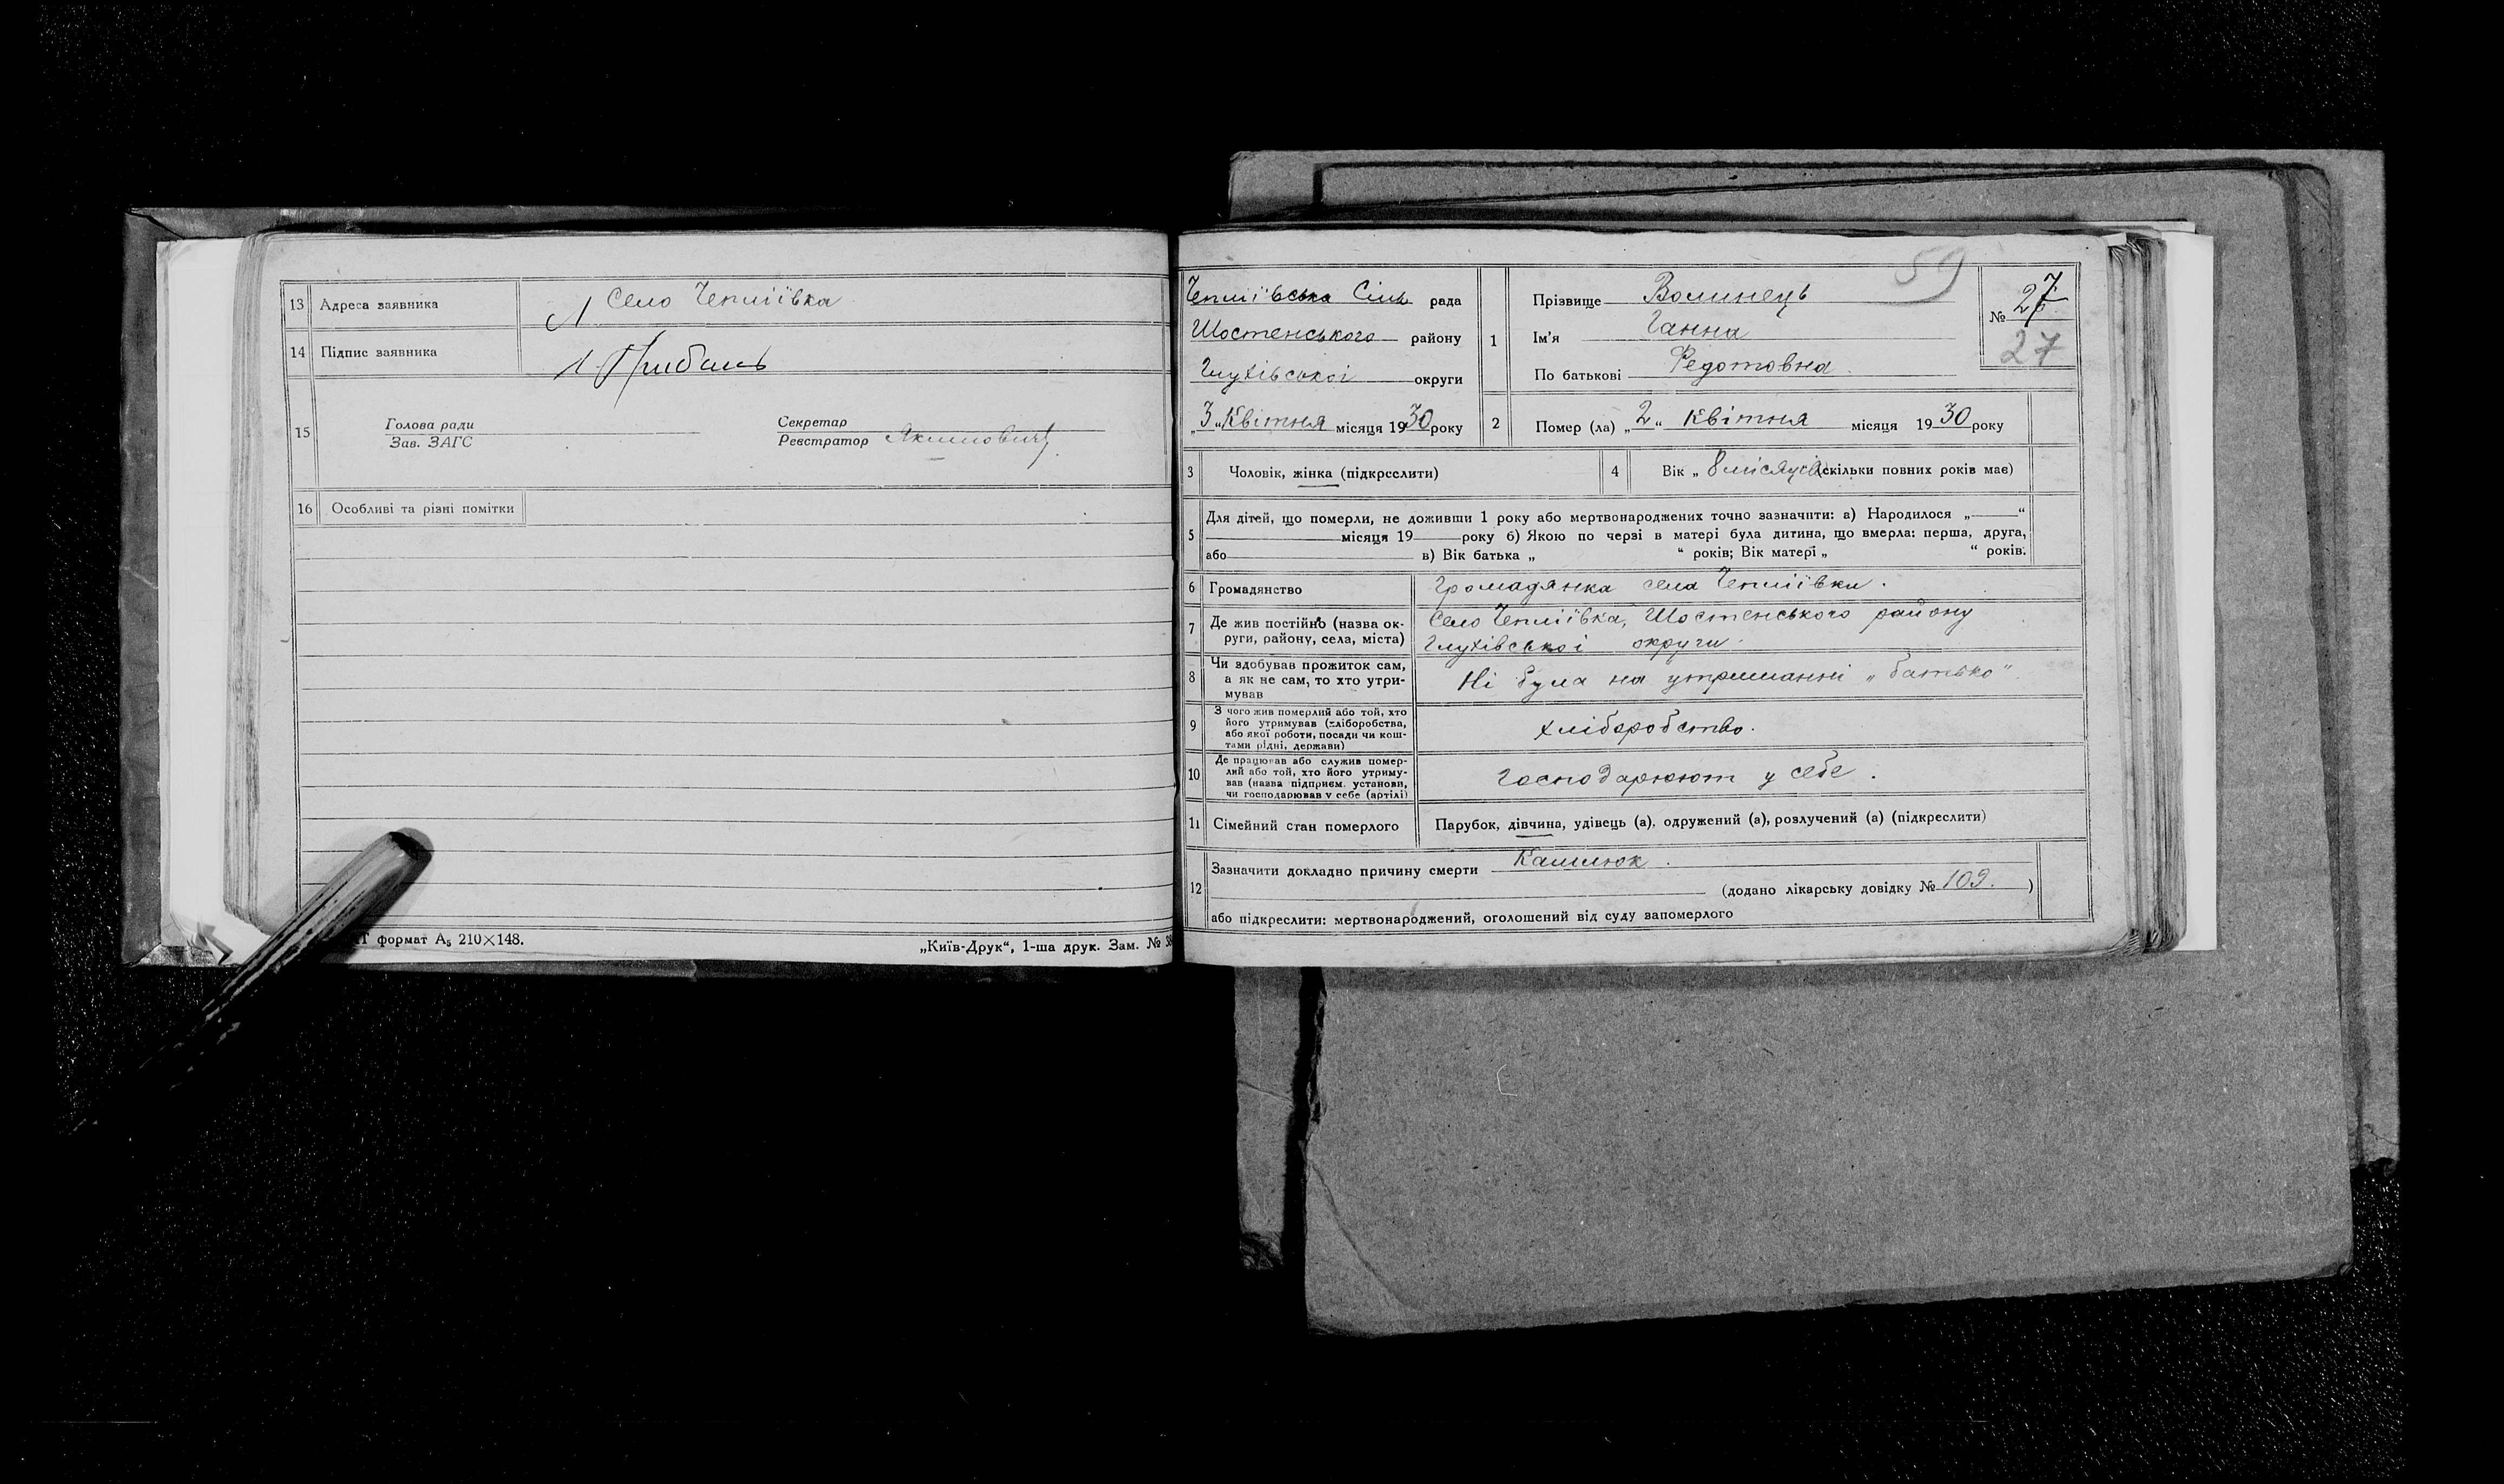 13 Адреса заявника Село Чепліївка
14 Підпис заявника
15 Голова ради
Зав. ЗАГС
Секретар
Реєстратор Якимович
16 Особливі та різні помітки
формат А5 210×148.
„Київ-Друк“, 1-ша друк. Зам. №
59
Чепліївська Сіль рада
Шостенського району
Глухівської округи
„3“ Квітня місяця 1930 року
1 Прізвище Волинець
Ім'я Ганна
По батькові Федотовна
№ 27
27
2 Помер (ла) „2“ Квітня місяця 1930 року
3 Чоловік, жінка (підкреслити)
4 Вік „ 8 місяців (скільки повних років має)
5 Для дітей, що померли, не доживши 1 року або мертвонароджених точно зазначити: а) Народилося „ “
місяця 19 року б) Якою по черзі в матері була дитина, що вмерла: перша, друга,
або в) Вік батька „ “ років; Вік матері „ “ років.
6 Громадянство громадянка села Чепліївки.
7 Де жив постійно (назва ок-
руги, району, села, міста)
село Чепліївка, Шостенського району
Глухівської округи.
8 Чи здобував прожиток сам,
а як не сам, то хто утри-
мував
Ні була на утриманні „батько“
9 З чого жив померлий або той, хто
його утримував (хліборобства,
або якої роботи, посади чи кош-
тами рідні, держави)
хліборобство.
10 Де працював або служив помер-
лий або той, хто його утриму-
вав (назва підприєм. установи,
чи господарював у себе (артілі)
господарюют у себе.
11 Сімейний стан померлого Парубок, дівчина, удівець (а), одружений (а), розлучений (а) (підкреслити)
12 Зазначити докладно причину смерти Кашлюк.
(додано лікарську довідку № 109.)
або підкреслити: мертвонароджений, оголошений від суду запомерлого